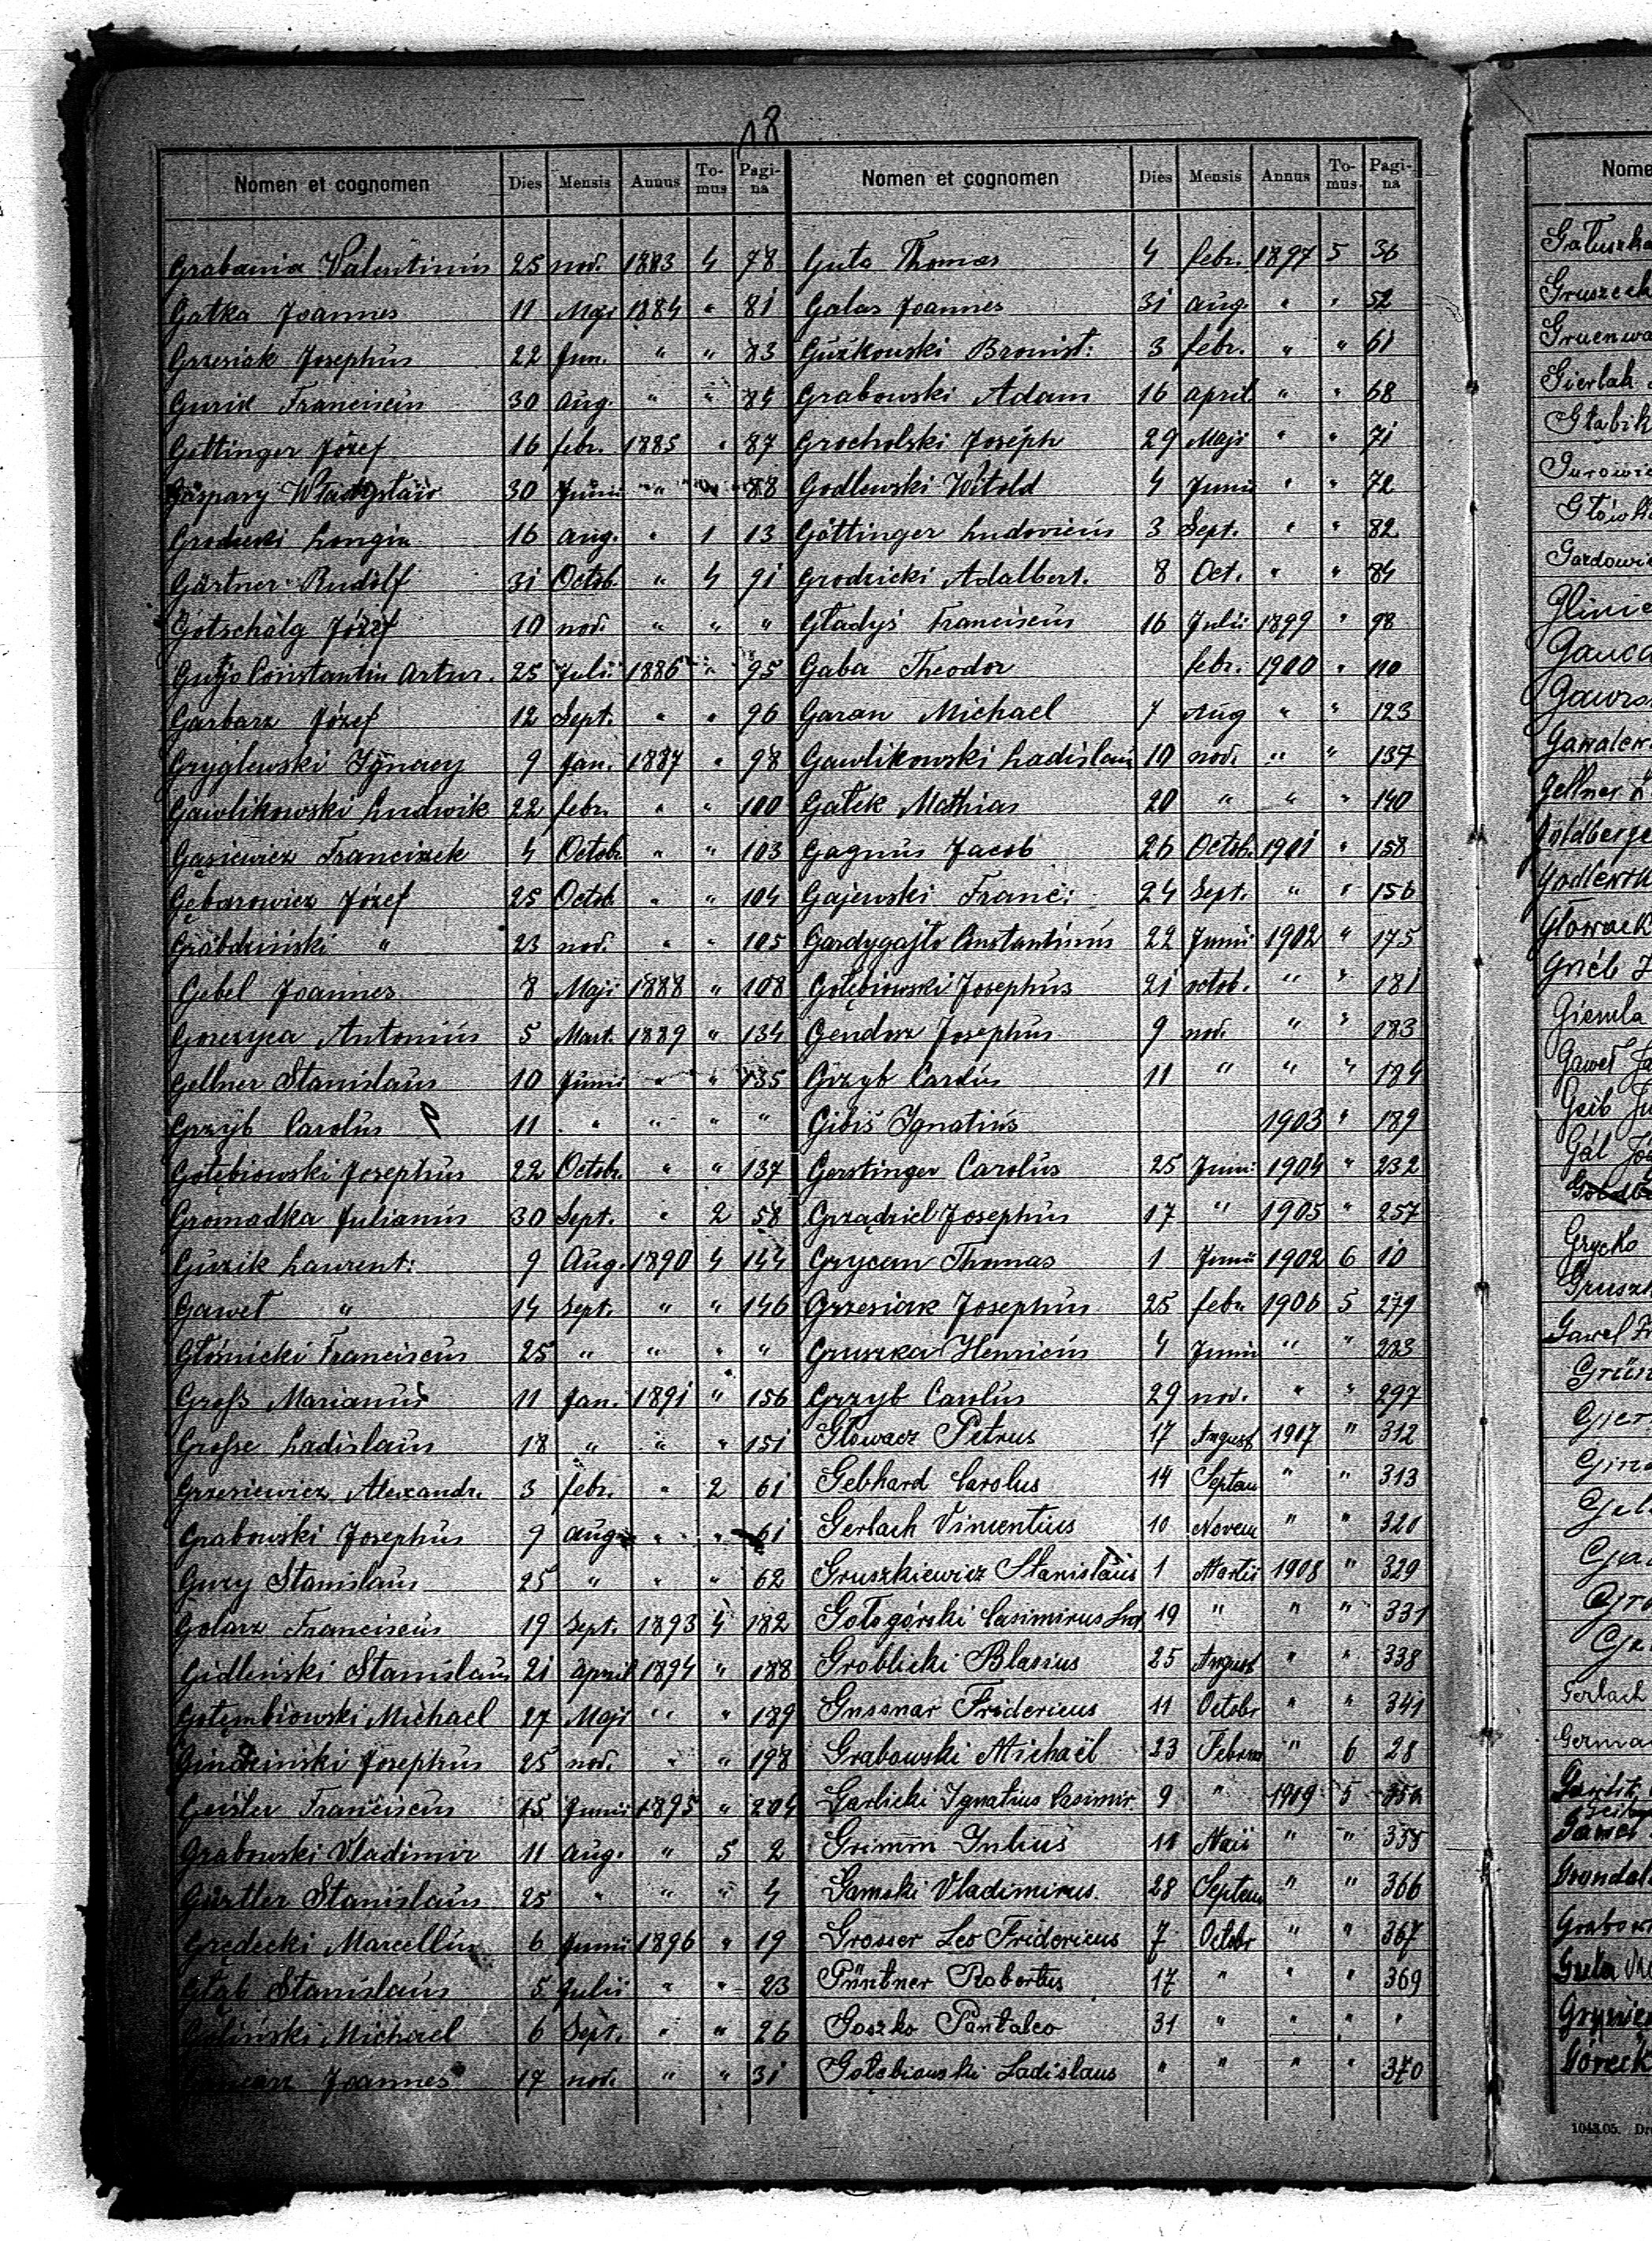 18
Nomen et cognomen Dies Mensis Annus To-mus Pagi-na
Grabania Valentinus 25 nov. 1883 4 78
Gatka Joannes 11 Maji 1884 " 81
Grzesiak Josephus 22 Jun. " " 83
Gurik Franciscus 30 Aug. " " 84
Göttinger Józef 16 febr. 1885 " 87
Gaspary Władysław 30 Junii " " 88
Grodzicki Longin 16 aug. " 1 13
Gärtner Rudolf 31 Octob. " 4 91
Gotschalg Józef 10 nov. " " "
Constantin Artur. 25 Julii 1886 " 95
Garbarz Józef 12 Sept. " " 96
Gryglewski Ignacy 9 Jan. 1887 " 98
Gawlikowski Ludwik 22 febr. " " 100
Gąsiewicz Franciszek 4 Octob. " " 103
Gębarowicz Józef 25 Octob " " 104
Grabdziński " 23 nov. " " 105
Gebel Joannes 8 Maji 1888 " 108
Gorczyca Antonius 5 Mart. 1889 " 134
Gellner Stanislaus 10 Junii " " 135
Grzyb Carolus 11 " " " "
Gołębiowski Josephus 22 Octob. " " 137
Gromadka Julianus 30 Sept. " 2 58
Guzik Laurent: 9 Aug. 1890 4 144
Gaweł " 14 Sept. " " 146
Głośnicki Franciscus 25 " " " "
Groß Marianus 11 Jan. 1891 " 156
Große Ladislaus 18 " " " 151
Grzesiewicz Alexandr. 3 febr. " 2 61
Grabowski Josephus 9 aug. " " 61
Guzy Stanislaus 25 " " " 62
Golarz Franciscus 19 Sept. 1893 4 182
Gidleński Stanislaus 21 april 1894 " 188
Gołembiowski Michael 27 Maji " " 189
Josephus 25 nov. " " 198
Geisler Franciscus 15 Junii 1895 " 204
Grabowski Vladimir 11 aug. " 5 2
Gürtler Stanislaus 25 " " " 4
Gredecki Marcellin 6 Junii 1896 " 19
Głąb Stanislaus 5 Julii " " 23
Galiński Michael 6 Sept. " " 26
Joannes 17 nov. " " 31
Nomen et cognomen Dies Mensis Annus To-mus. Pagi-na
Guta Thomas 4 febr. 1897 5 36
Galas Joannes 31 aug. " " 52
Guzkowski Bronisł: 3 febr. " " 61
Grabowski Adam 16 april. " " 68
Grocholski Joseph 29 Maji " " 71
Godlewski Witold 4 Junii " " 72
Göttinger Ludovicus 3 Sept. " " 82
Grodzicki Adalbert. 8 Oct. " " 84
Gładyś Franciscus 16 Julii 1899 " 98
Gaba Theodor febr. 1900 " 110
Garan Michael 7 Aug " " 123
Gawlikowski Ladislaus 10 nov. " " 137
Gałek Mathias 20 " " " 140
Gagnus Jacob 26 Octob. 1901 " 158
Gajewski Franc: 24 Sept. " " 156
Gardygajło Constantinus 22 Junii 1902 " 175
Gołębiowski Josephus 21 octob. " " 181
Gendorz Josephus 9 nov. " " 183
Grzyb Carolus 11 " " " 184
Gibiś Ignatius 1903 " 189
Gerstinger Carolus 25 Junii 1904 " 232
Grządziel Josephus 17 " 1905 " 257
Grycan Thomas 1 Junii 1902 6 10
Grzesiak Josephus 25 febr. 1906 5 279
Gruszka Henricus 4 Junii " " 283
Grzyb Carolus 29 nov. " " 297
Głowacz Petrus 17 August 1907 " 312
Gebhard Carolus 14 Septem " " 313
Gerlach Vincentius 10 Novem " " 320
Gruszkiewicz Stanislaus 1 Martii 1908 " 329
Gołogórski Casimirus Lud 19 " " " 331
Groblicki Blasius 25 August " " 338
Gussnar Fridericus 11 Octobr " " 341
Grabowski Michaël 23 Februa " 6 28
Garlicki Ignatius Casimir 9 " 1909 5 350
Grimm Julius 11 Maii " " 358
Gamski Vladimirus. 28 Septem " " 366
Grosser Leo Fridericus 7 Octobr " " 367
Güntner Robertus 17 " " " 369
Goszko Pantaleo 31 " " " "
Gołębiowski Ladislaus " " " " 370
Nome
Gałuszka
Gruszeck
Gruenwa
Gierlak
Głabik
Gurowie
Główk
Gazdowi
Glinie
Gauca
Gawro
Gawalew
Gellner
Goldberge
Godlewsk
Głowack
Gnieb
Gierula
Gaweł
Geib
Gál
Grycko
Gruszk
Gaweł
Grün
Gerlach
Germa
Gawel
Grondal
Grabow
Guła
Goreck
1043.05. Dr